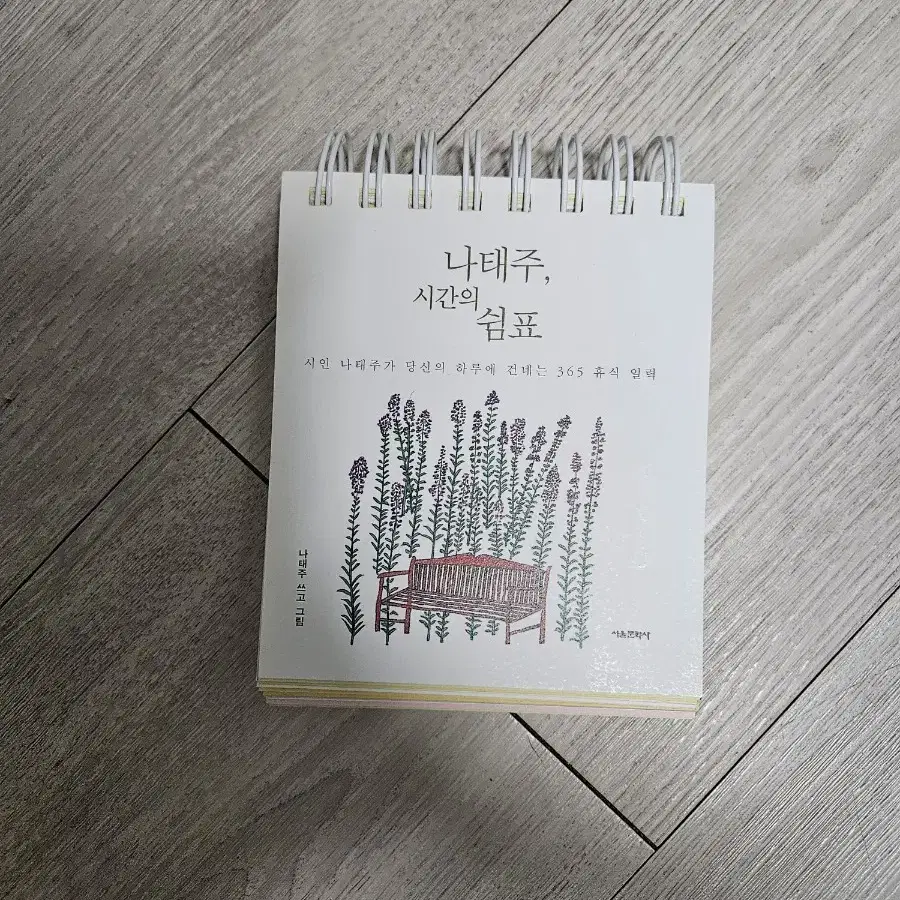 나태주,
시간의
쉼표
시인 나태주가 당신의 하루에 건네는 365 휴식 일력
나태주 쓰고 그림
서울문화사